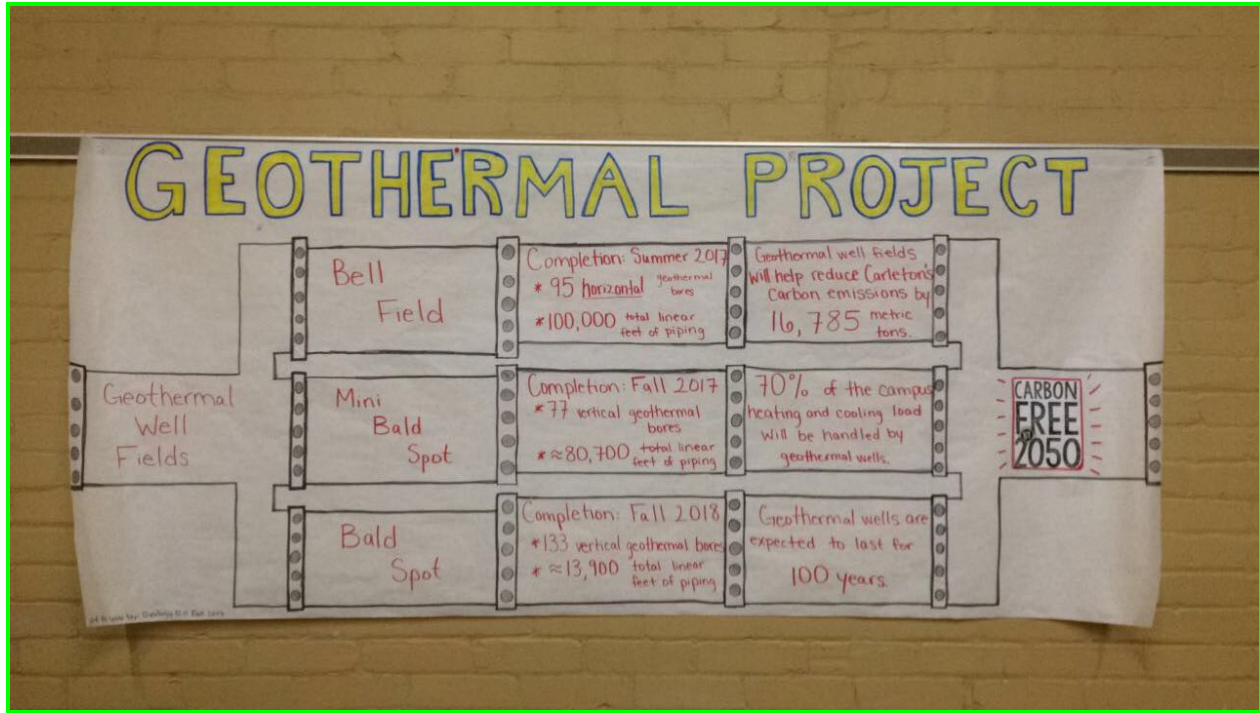 GEOTHERMAL PROJECT
Geothermal
Well
Fields
Bell
Field
Completion: Summer 2017
* 95 horizontal geothermal
bores
*100,000 total linear
feet of piping
Geothermal well fields
will help reduce Carleton's
Carbon emissions by
16,785 metric
tons.
Mini
Bald
Spot
Completion: Fall 2017
*77 vertical geothermal
bores
*≈80,700 total linear
feet of piping
70% of the campus
heating and cooling load
will be handled by
geothermal wells.
Bald
Spot
Completion: Fall 2018
*133 vertical geothermal bores
* ≈13,900 total linear
feet of piping
Geothermal wells are
expected to last for
100 years.
CARBON
FREE
BY
2050